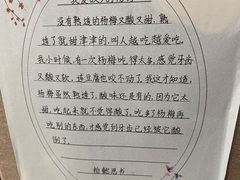 没有熟透的杨梅又酸又甜,熟
透了就甜津津的,叫人越吃越爱吃。
我小时候,有一次杨梅吃得太多,感觉牙齿
又酸又软,连豆腐也咬不动了。我这才知道,
杨梅虽然熟透了,酸味还是有的,因为它太
甜,吃起来就不觉得酸了。吃多了杨梅再
吃别的东西,才感觉到牙齿已经被它酸
倒了。